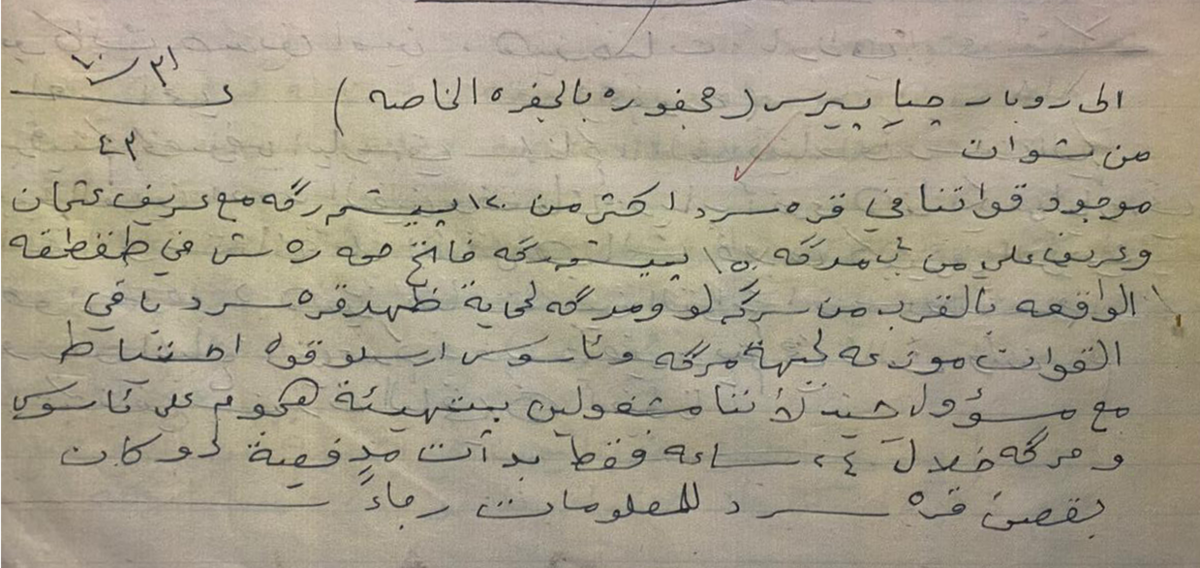 ٣١
الى روبار چيا پيرس (محفوره بالجفره الخاصه)
٤٣
من شوان
موجود قواتنا في قره سرد اكثر من ١٢٠ پيشمرگه مع عريف عثمان
وعريف علي من مرگه ١٥٠ پيشمرگه فاتح حمه ره ش في طقطقه
الواقعه بالقرب من سرگه لو ومرگه لحماية ظهر قره سرد باقي
القوات موزعه لجبهة مرگه وئاسوس ارسلو قوه احتياط
مع مسؤول جيد لأننا مشغولين بتهيئة هجوم على ئاسوس
ومرگه خلال ٢٤ ساعه فقط بدأت مدفعية دوكان
بقصف قره سرد للمعلومات رجاءً